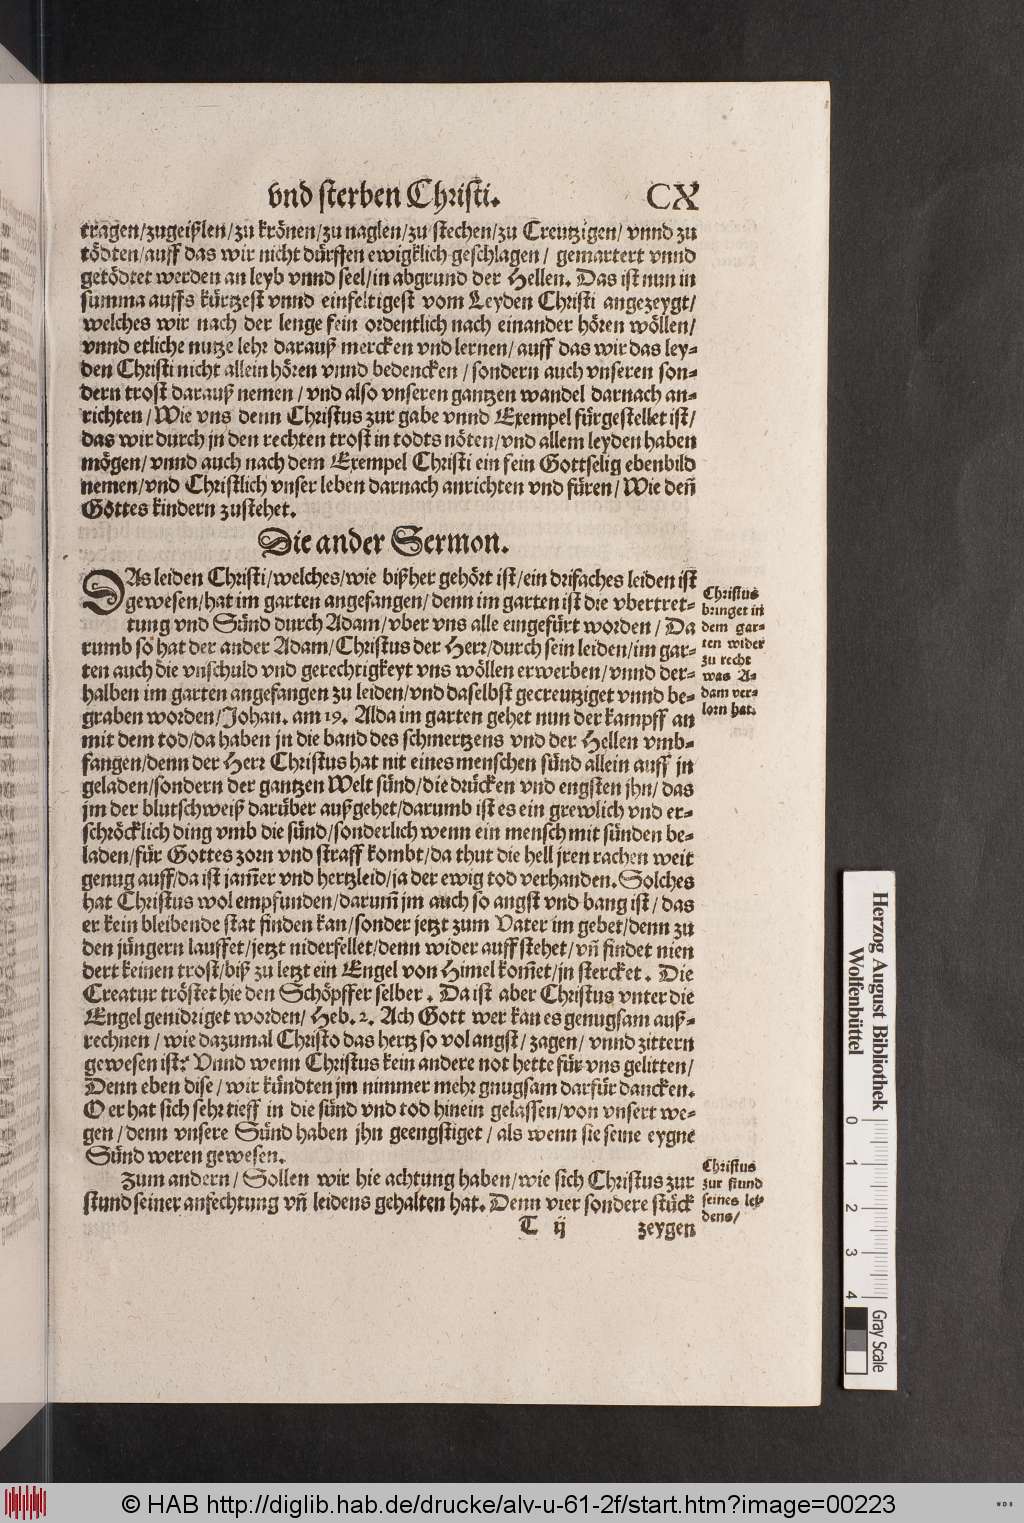 vnd sterben Christi. CX
tragen/zugeißlen/zu krönen/zu naglen/zu stechen/zu Creutzigen/ vnnd zu
tödten/auff das wir nicht dürfften ewigklich geschlagen/ gemartert vnnd
getödtet werden an leyb vnnd seel/in abgrund der Hellen. Das ist nun in
summa auffs kürtzest vnnd einfeltigest vom Leyden Christi angezeygt/
welches wir nach der lenge fein ordentlich nach einander hören wöllen/
vnnd etliche nutze lehr darauß mercken vnd lernen/ auff das wir das ley-
den Christi nicht allein hören vnnd bedencken/ sondern auch vnseren son-
dern trost darauß nemen/ vnd also vnseren gantzen wandel darnach an-
richten/Wie vns denn Christus zur gabe vnnd Exempel fürgestellet ist/
das wir durch jn den rechten trost in todts nöten/vnd allem leyden haben
mögen/ vnnd auch nach dem Exempel Christi ein fein Gottselig ebenbild
nemen/vnd Christlich vnser leben darnach anrichten vnd füren/ Wie deñ
Gottes kindern zustehet.
Die ander Sermon.
DAs leiden Christi/welches/wie bißher gehört ist/ein drifaches leiden ist
gewesen/hat im garten angefangen/ denn im garten ist die vbertret-
tung vnd Sünd durch Adam/vber vns alle eingefürt worden/ Da
rumb so hat der ander Adam/Christus der Herr/durch sein leiden/im gar-
ten auch die vnschuld vnd gerechtigkeyt vns wöllen erwerben/vnnd der-
halben im garten angefangen zu leiden/vnd daselbst gecreutziget vnnd be-
graben worden/Johan. am 19. Alda im garten gehet nun der kampff an
mit dem tod/da haben jn die band des schmertzens vnd der Hellen vmb-
fangen/denn der Herr Christus hat nit eines menschen sünd allein auff jn
geladen/sondern der gantzen Welt sünd/die drücken vnd engsten jhn/ das
jm der blutschweiß darüber außgehet/darumb ist es ein grewlich vnd er-
schröcklich ding vmb die sünd/sonderlich wenn ein mensch mit sünden be-
laden/für Gottes zorn vnd straff kombt/da thut die hell jren rachen weit
genug auff/da ist jam̃er vnd hertzleid/ja der ewig tod verhanden. Solches
hat Christus wol empfunden/darum̃ jm auch so angst vnd bang ist/ das
er kein bleibende stat finden kan/sonder jetzt zum Vater im gebet/denn zu
den jüngern lauffet/jetzt niderfellet/denn wider auff stehet/vñ findet nien
dert keinen trost/biß zu letzt ein Engel von Himel kom̃et/jn stercket. Die
Creatur tröstet hie den Schöpffer selber. Da ist aber Christus vnter die
Engel genidriget worden/ Heb. 2. Ach Gott wer kan es genugsam auß-
rechnen/ wie dazumal Christo das hertz so vol angst/ zagen/ vnnd zittern
gewesen ist? Vnnd wenn Christus kein andere not hette für vns gelitten/
Denn eben dise/ wir kündten jm nimmer mehr gnugsam darfür dancken.
O er hat sich sehr tieff in die sünd vnd tod hinein gelassen/von vnsert we-
gen/denn vnsere Sünd haben jhn geengstiget/ als wenn sie seine eygne
Sünd weren gewesen.
Zum andern/ Sollen wir hie achtung haben/wie sich Christus zur
stund seiner anfechtung vñ leidens gehalten hat. Denn vier sondere stück
T ij zeygen
Christus
bringet in
dem gar-
ten wider
zu recht
was A-
dam ver-
lorn hat.
Christus
zur stund
seines lei-
dens/
Herzog August Bibliothek
Wolfenbüttel
0 1 2 3 4
Gray Scale
© HAB http://diglib.hab.de/drucke/alv-u-61-2f/start.htm?image=00223